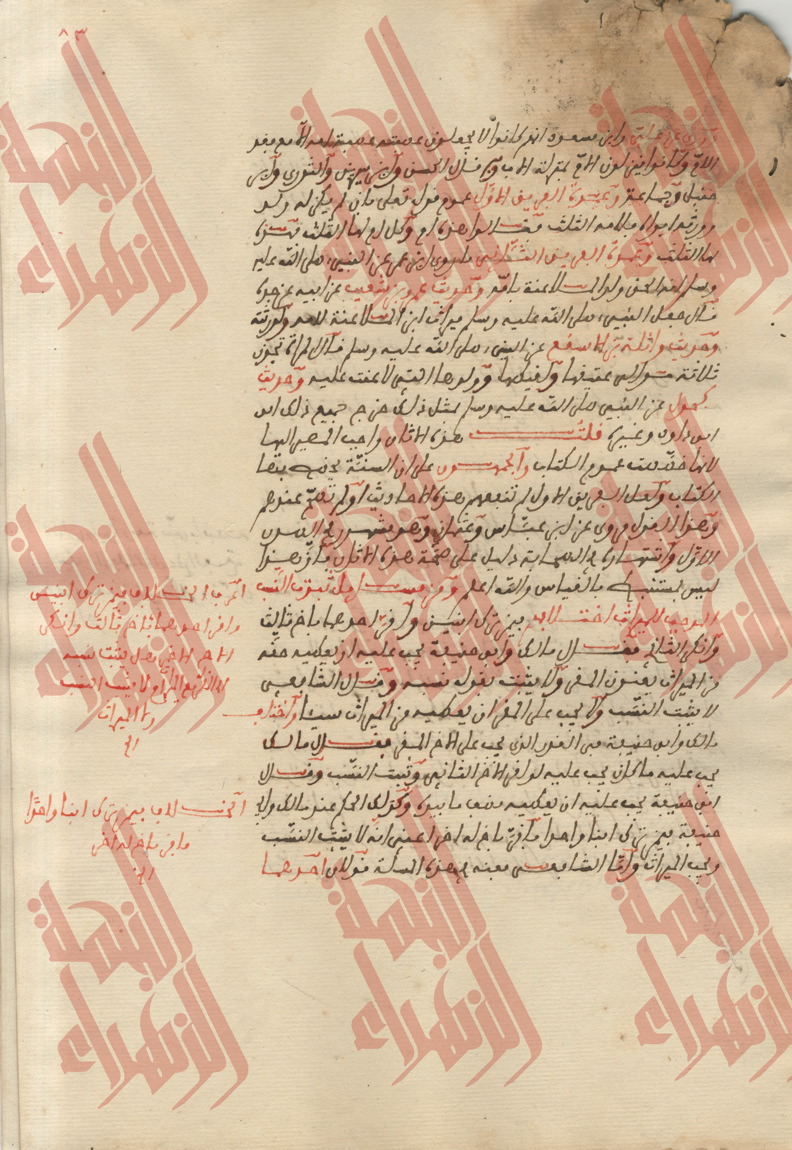 ٨٣
وروي عن علي وابن مسعود انهم كانوا لا يجعلون عصبته عصبة امه الا مع فقد
الام وكانوا ينزلون الام بمنزلة الاب وبه قال الحسن وابن سيرين والثوري وابن
حنبل وجماعة وعمدة الفريق الاول عموم قوله تعلى فان لم يكن له ولد
وورثه ابواه فلامه الثلث فقالوا هذه ام وكل ام لها الثلث فهذه
لها الثلث وعمدة الفريق الثاني ما روي ابن عمر عن النبي صلى الله عليه
وسلم انه الحق ولد الملاعنة بامه وحديث عمرو بن شعيب عن ابيه عن جده
قال جعل النبي صلى الله عليه وسلم ميراث ابن الملاعنة لامه ولورثته
وحديث واثلة بن الاسقع عن النبي صلى الله عليه وسلم قال المراة تحوز
ثلاثة مواريث عتيقها ولقيطها وولدها التي لاعنت عليه وحديث
مكحول عن النبي صلى الله عليه وسلم بمثل ذلك خرج جميع ذلك ابو
داوود وغيره قلت هذه الاثار واجب المصير اليها
لانها خصصت عموم الكتاب والجمهور على ان السنة يخصص بها
الكتاب ولعل الفريق الاول لم تبلغهم هذه الاحاديث او لم تصح عندهم
وهذا القول مروي عن ابن عباس وعثمان وهو مشهور في الصدر
الاول واشتهاره في الصحابة دليل على صحة هذه الاثار فان هذا
ليس يستنبط بالقياس والله اعلم ومن مسائل ثبوت النسب
الموجب للميراث اختلافهم فيمن ترك ابنين واقر احدهما باخ ثالث
وانكر الثاني فقال مالك وابو حنيفة يجب عليه ان يعطيه حقه
من الميراث يعنون المقر ولا يثبت بقوله نسبه وقال الشافعي
لا يثبت النسب ولا يجب على المقر ان يعطيه من الميراث شيئا واختلف
مالك وابو حنيفة في القدر الذي يجب على الاخ المقر فقال مالك
يجب عليه ما كان يجب عليه لو اقر الاخ الثاني وثبت النسب وقال
ابو حنيفة يجب عليه ان يعطيه نصف ما بيده وكذلك الحكم عند مالك وابي
حنيفة فيمن ترك ابنا واحدا فاقر باخ له اخر اعني انه لا يثبت النسب
ويجب الميراث واما الشافعي فعنه في هذه المسألة قولان احدهما
الخلاف فيمن ترك ابنين
واقر احدهما باخ ثالث وانكر
الاخ الاخر هل يثبت نسبه
ولا يثبت النسب
الميراث
الخ
الخلاف فيمن ترك ابنا واحدا
فاقر باخ له اخر
الخ
الزهراء